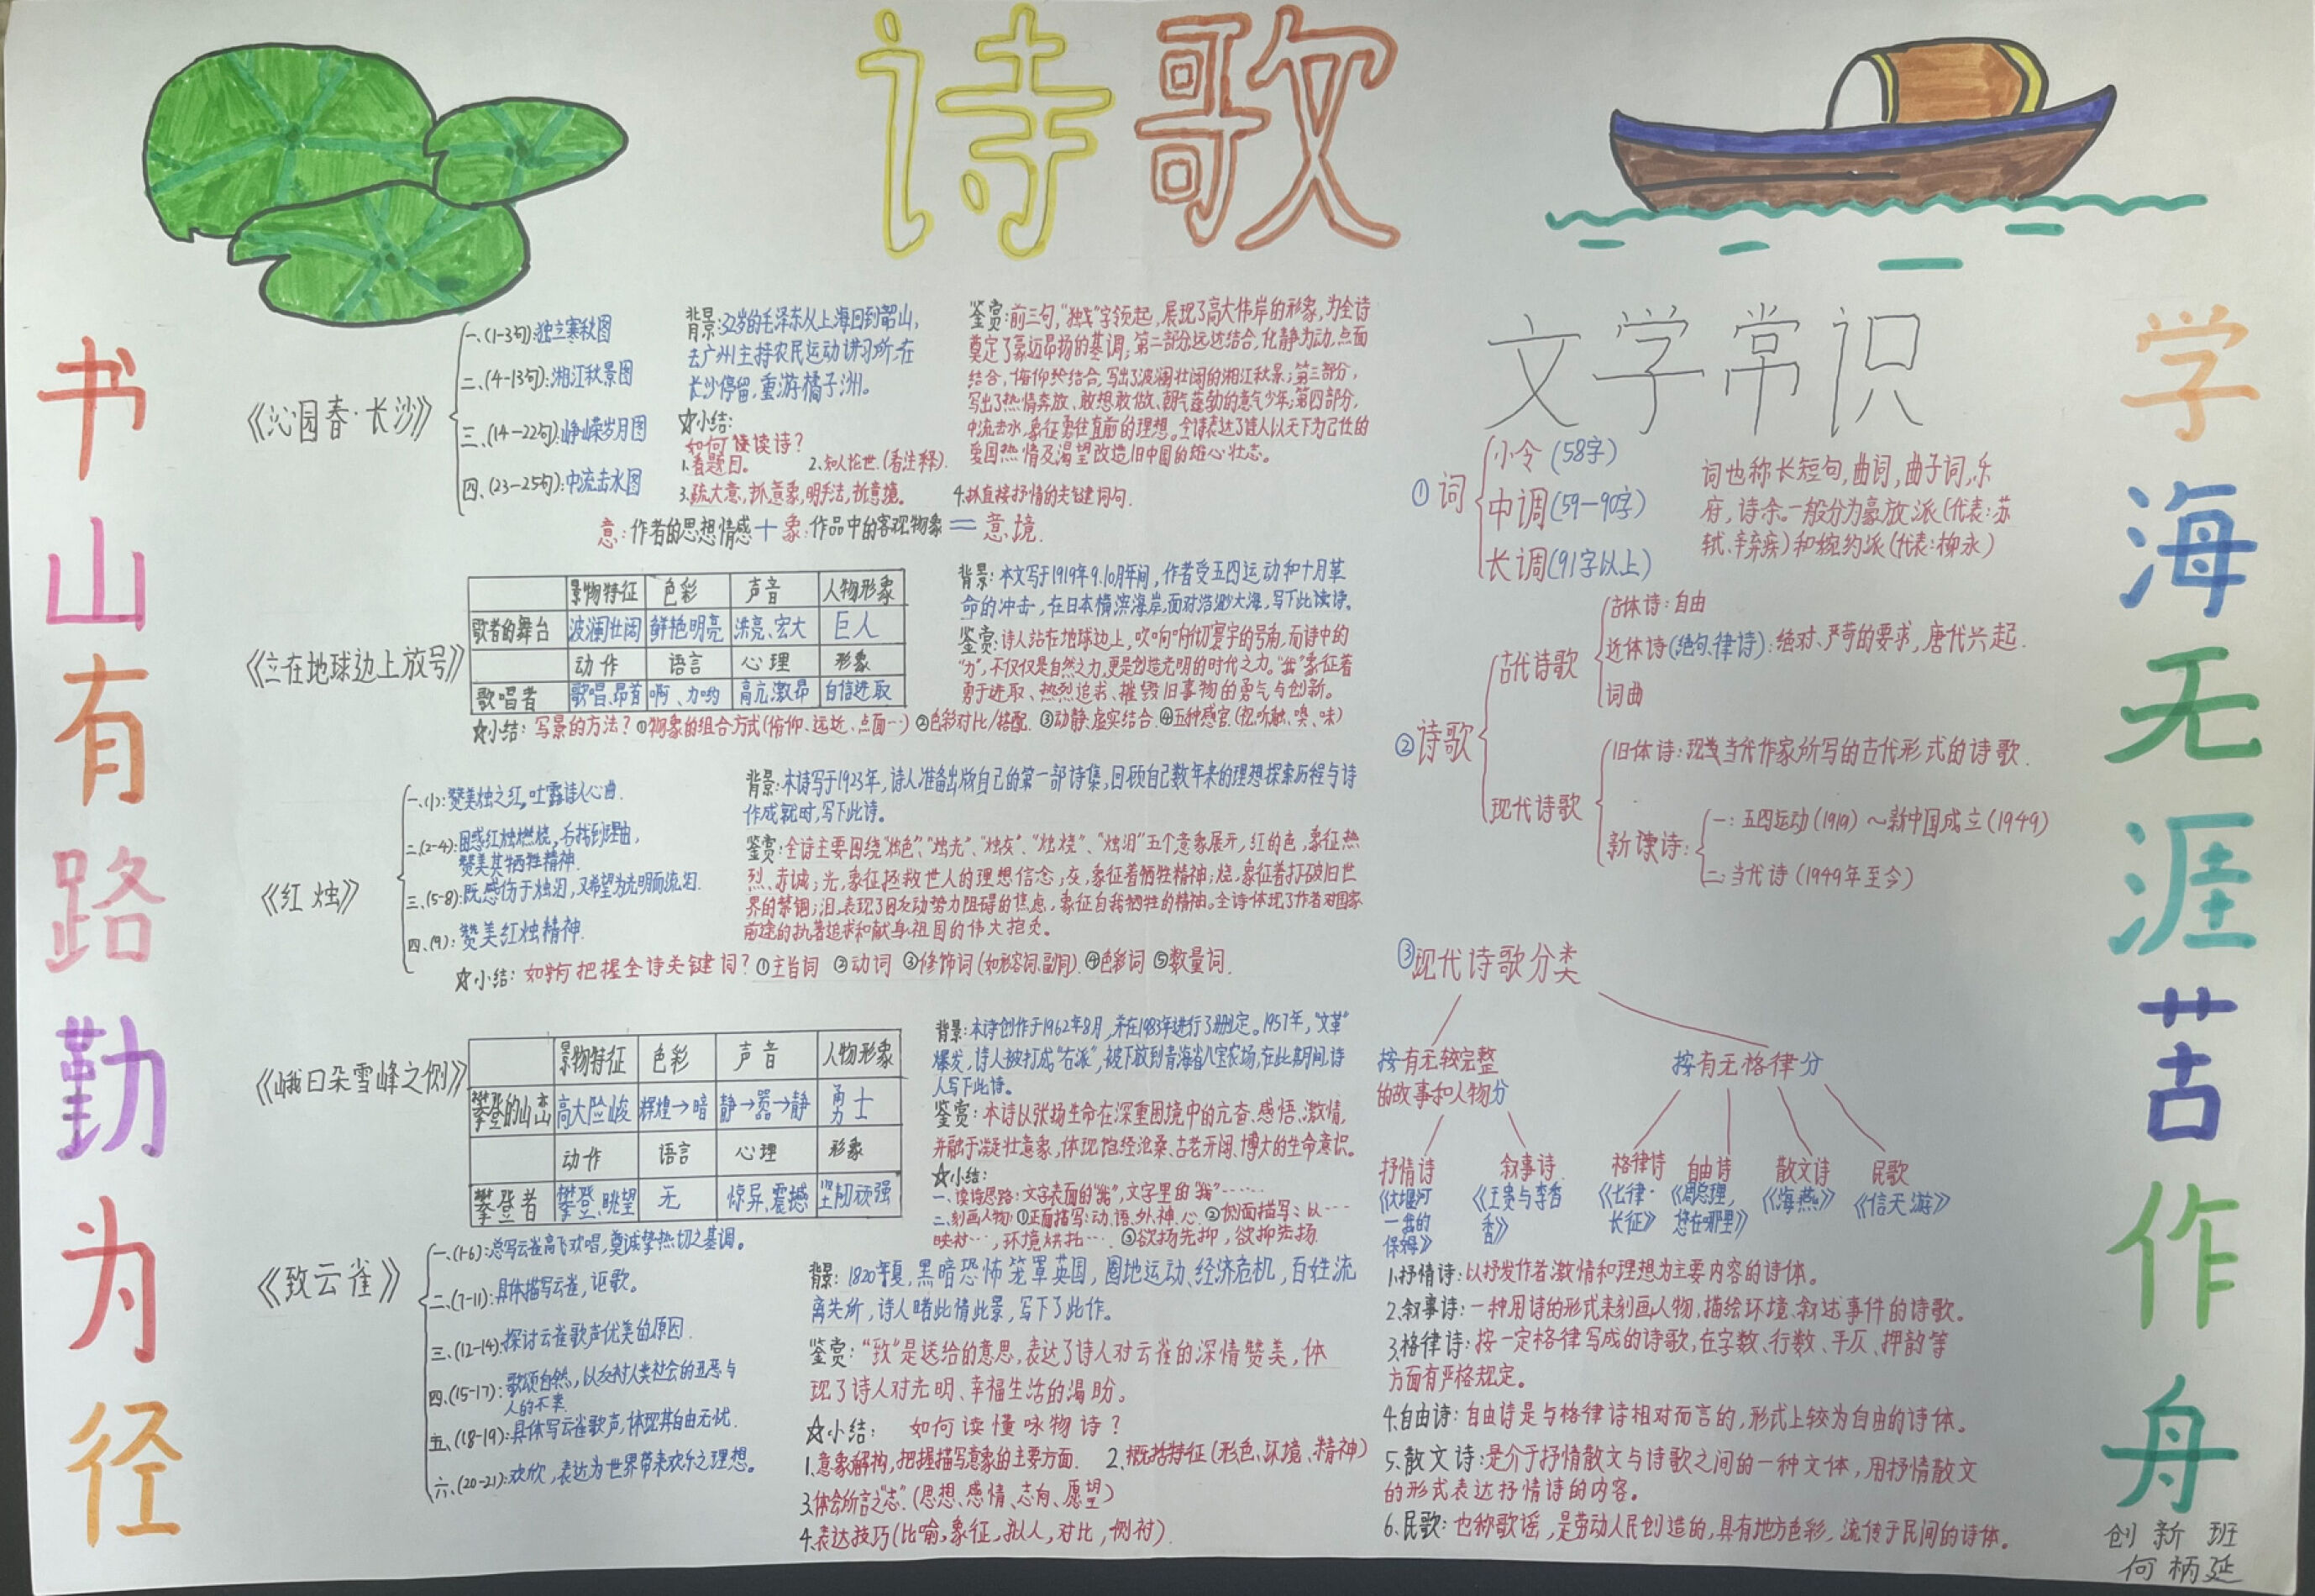 诗歌
书山有路勤为径
学海无涯苦作舟
《沁园春·长沙》
一、(1-3句):独立寒秋图
二、(4-13句):湘江秋景图
三、(14-22句):峥嵘岁月图
四、(23-25句):中流击水图
背景:32岁的毛泽东从上海回到韶山,
去广州主持农民运动讲习所,在
长沙停留,重游橘子洲。
☆小结:
如何读诗?
1.看题目。 2.知人论世.(看注释).
3.疏大意,抓意象,明手法,析意境。 4.抓直接抒情的关键词句.
鉴赏:前三句,“独”字领起,展现了高大伟岸的形象,为全诗
奠定了豪迈昂扬的基调;第二部分远近结合,化静为动,点面
结合,俯仰结合,写出了波澜壮阔的湘江秋景;第三部分,
写出了热情奔放、敢想敢做、朝气蓬勃的意气少年;第四部分,
中流击水,象征勇往直前的理想。全诗表达了诗人以天下为己任的
爱国热情及渴望改造旧中国的雄心壮志。
意:作者的思想情感+象:作品中的客观物象=意境.
《立在地球边上放号》
景物特征 色彩 声音 人物形象
歌者的舞台 波澜壮阔 鲜艳明亮 洪亮、宏大 巨人
动作 语言 心理 形象
歌唱者 歌唱、昂首 啊、力哟 高亢、激昂 自信进取
背景:本文写于1919年9.10月年间,作者受五四运动和十月革
命的冲击,在日本横滨海岸,面对浩渺大海,写下此诗。
鉴赏:诗人站在地球边上,吹响响彻寰宇的号角,而诗中的
“力”,不仅仅是自然之力,更是创造光明的时代之力。“我”象征着
勇于进取、热烈追求、摧毁旧事物的勇气与创新。
☆小结:写景的方法?①物象的组合方式(俯仰、远近、点面…)②色彩对比/搭配.③动静、虚实结合.④五种感官.(视、听、触、嗅、味)
《红烛》
一、(1):赞美烛之红,吐露诗人心曲.
二、(2-4):困惑红烛燃烧,后找到理由,
赞美其牺牲精神.
三、(5-8):既感伤于烛泪,又希望为光明而流泪.
四、(9):赞美红烛精神.
背景:本诗写于1923年,诗人准备出版自己的第一部诗集,回顾自己数年来的理想探索历程与诗
作成就时,写下此诗。
鉴赏:全诗主要围绕“烛色”、“烛光”、“烛灰”、“烛烧”、“烛泪”五个意象展开,红的色,象征热
烈、赤诚;光,象征拯救世人的理想信念;灰,象征着牺牲精神;烧,象征着打破旧世
界的禁锢;泪,表现了因反动势力阻碍的焦虑,象征自我牺牲的精神。全诗体现了作者对国家
前途的执著追求和献身祖国的伟大抱负。
☆小结:如何把握全诗关键词?①主旨词 ②动词 ③修饰词(如形容词、副词).④色彩词 ⑤数量词.
《峨日朵雪峰之侧》
景物特征 色彩 声音 人物形象
攀登的山峦 高大险峻 辉煌→暗 静→嚣→静 勇士
动作 语言 心理 形象
攀登者 攀登、眺望 无 惊异、震撼 坚韧顽强
背景:本诗创作于1962年8月,并在1983年进行了删定。1957年,“文革”
爆发,诗人被打成“右派”,被下放到青海省八宝农场,在此期间,诗
人写下此诗。
鉴赏:本诗以张扬生命在深重困境中的亢奋、感悟、激情,
并融于凝壮意象,体现饱经沧桑、古老开阔、博大的生命意识。
☆小结:
一、读诗思路:文字表面的“我”,文字里的“我”……
二、刻画人物:①正面描写:动、语、外、神、心.②侧面描写:以…
映衬…,环境烘托….③欲扬先抑,欲抑先扬.
《致云雀》
一、(1-6):总写云雀高飞欢唱,奠诚挚热切之基调。
二、(7-11):具体描写云雀,讴歌。
三、(12-14):探讨云雀歌声优美的原因.
四、(15-17):歌颂自然,以反衬人类社会的丑恶与
人的不幸.
五、(18-19):具体写云雀歌声,体现其自由无忧.
六、(20-21):欢欣,表达为世界带来欢乐之理想。
背景:1820年夏,黑暗恐怖笼罩英国,圈地运动、经济危机,百姓流
离失所,诗人睹此情此景,写下了此作。
鉴赏:“致”是送给的意思,表达了诗人对云雀的深情赞美,体
现了诗人对光明、幸福生活的渴盼。
☆小结: 如何读懂咏物诗?
1.意象解构,把握描写意象的主要方面. 2.概括特征(形色、环境、精神)
3.体会所言之“志”.(思想、感情、志向、愿望)
4.表达技巧(比喻,象征,拟人,对比,侧衬).
文学常识
①词
小令(58字)
中调(59-90字)
长调(91字以上)
词也称长短句,曲词,曲子词,乐
府,诗余。一般分为豪放派(代表:苏
轼、辛弃疾)和婉约派(代表:柳永)
②诗歌
古代诗歌
古体诗:自由
近体诗(绝句、律诗):绝对、严苛的要求,唐代兴起.
词曲
现代诗歌
旧体诗:现当代作家所写的古代形式的诗歌.
新诗:
一:五四运动(1919)~新中国成立(1949)
二:当代诗(1949年至今)
③现代诗歌分类
按有无较完整
的故事和人物分
按有无格律分
抒情诗 叙事诗. 格律诗 自由诗 散文诗 民歌
《大堰河
一我的
保姆》
《王贵与李香
香》
《七律·
长征》
《周总理,
您在哪里》
《海燕》
《信天游》
1.抒情诗:以抒发作者激情和理想为主要内容的诗体。
2.叙事诗:一种用诗的形式来刻画人物,描绘环境、叙述事件的诗歌。
3.格律诗:按一定格律写成的诗歌,在字数、行数、平仄、押韵等
方面有严格规定。
4.自由诗:自由诗是与格律诗相对而言的,形式上较为自由的诗体。
5.散文诗:是介于抒情散文与诗歌之间的一种文体,用抒情散文
的形式表达抒情诗的内容。
6.民歌:也称歌谣,是劳动人民创造的,具有地方色彩,流传于民间的诗体。
创新班
何柄延